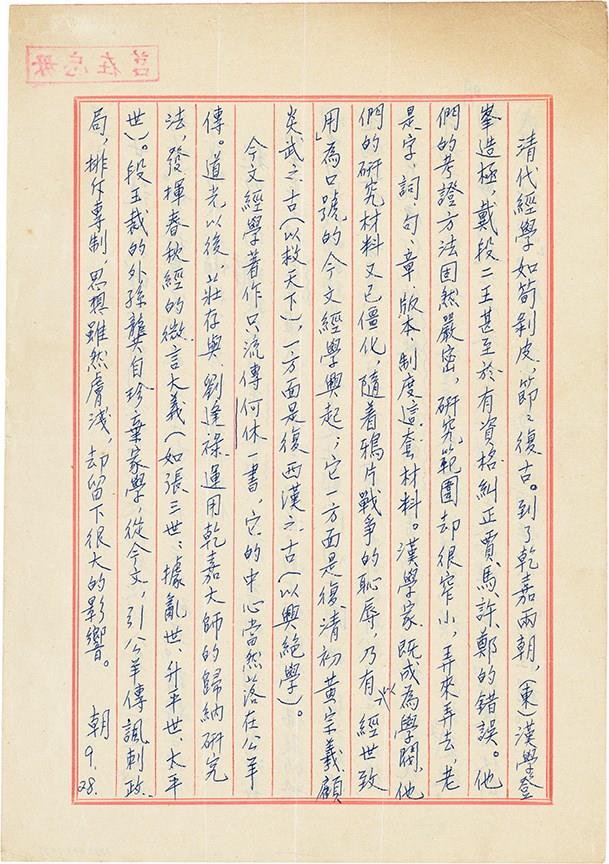 清代經學如筍剥皮，節々復古。到了乾嘉兩朝，（東）漢學登
峯造極，戴段二王甚至於有資格糾正賈、馬、許、鄭的錯誤。他
們的考證方法固然嚴密，研究範圍却很窄小，弄來弄去，老
是字、詞、句、章、版本、制度這套材料。漢學家既成為學閥，他
們的研究材料又已僵化，隨着鴉片戰爭的恥辱，乃有「經世致
用」為口號的今文經學興起；它一方面是復清初黄宗羲顧
炎武之古（以救天下），一方面是復西漢之古（以興絕學）。
今文經學著作只流傳何休一書，它的中心當然落在公羊
傳。道光以後，莊存與、劉逢祿運用乾嘉大師的歸納研究
法，發揮春秋經的微言大義（如張三世、據亂世、升平世、太平
世）。段玉裁的外孫龔自珍棄家學，從今文，引公羊傳諷刺政
局，排斥專制，思想雖然膚淺，却留下很大的影響。　朝　9.28.
毋忘在莒